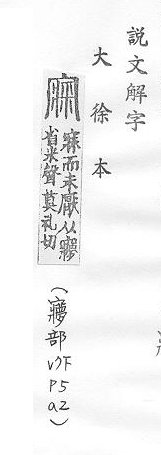 說文解字
大徐本
寐而未厭从㝱
省米聲莫礼切
(㝱部v7下P5a2)